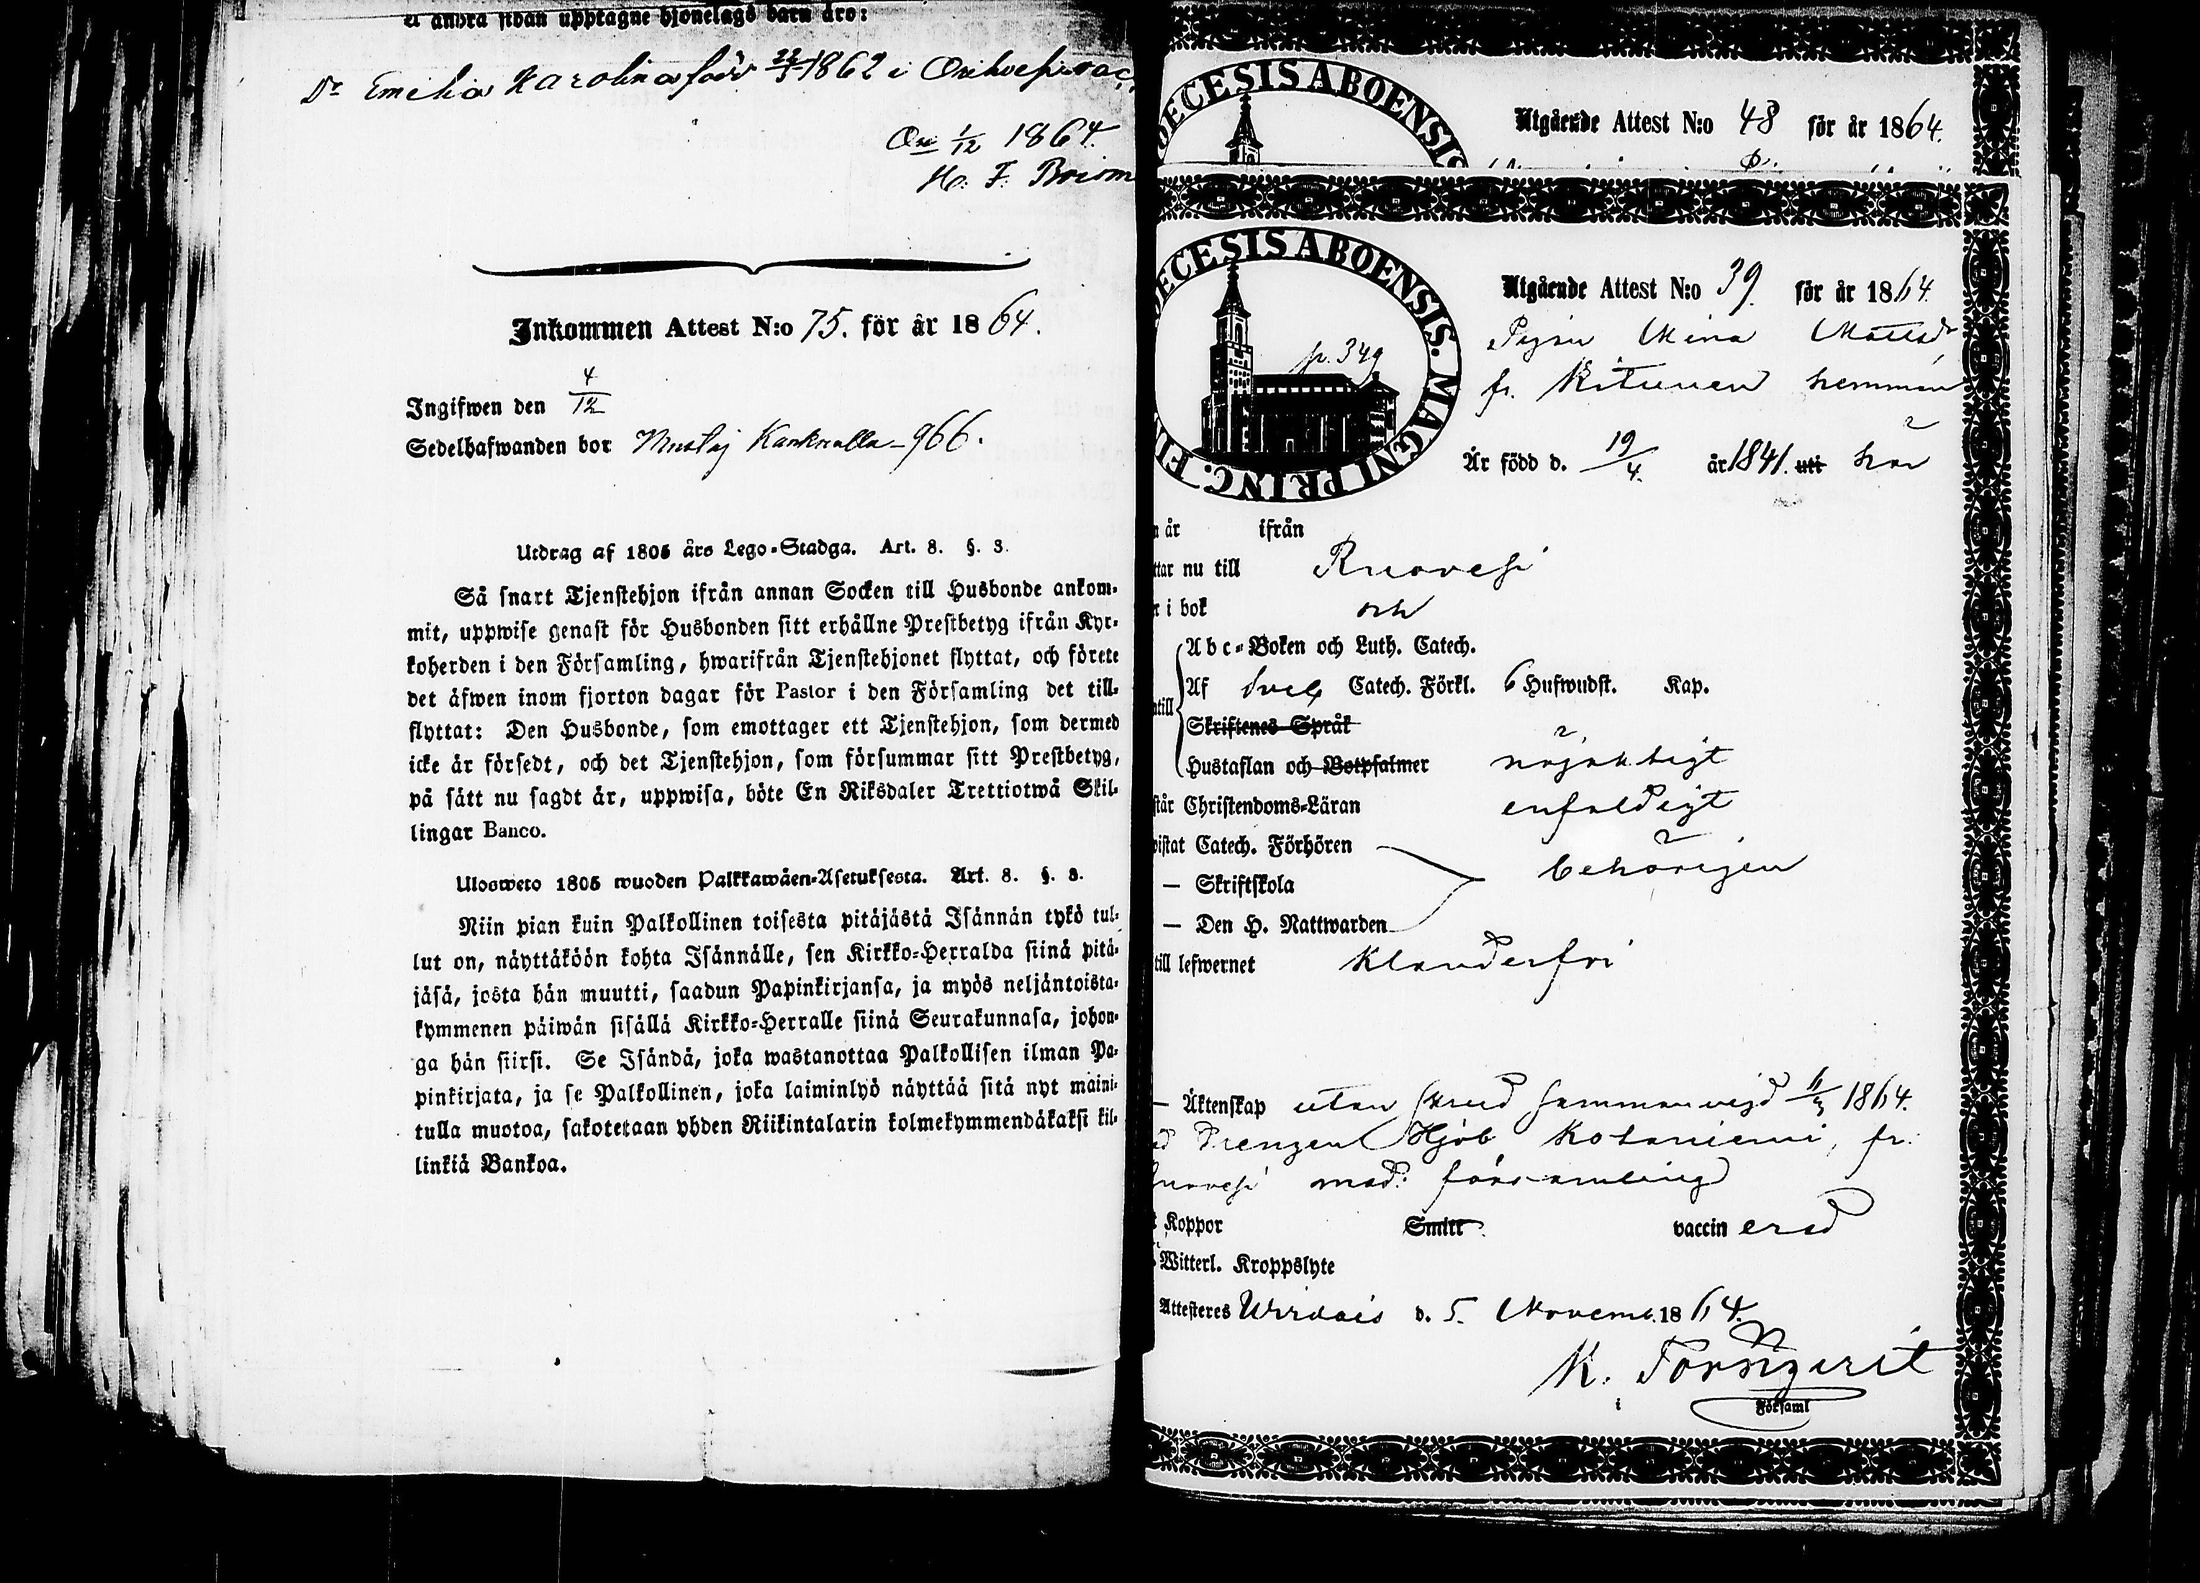 å andra sidan upptagne hjonelags barn äro:
Dr Emelia Karolina född 22/3 1862 i
Ori 1/12 1864.
H. F.
Inkommen Attest N:o 75. för år 1864.
Ingifwen den 4/12
Sedelhafwanden bor Mustaj Kankralla - 966.
Utdrag af 1805 års Lego-Stadga. Art. 8. §. 3.
Så snart Tjenstehjon ifrån annan Socken till Husbonde ankom-
mit, uppwise genast för Husbonden sitt erhållne Prestbetyg ifrån Kyr-
koherden i den Församling, hwarifrån Tjenstehjonet flyttat, och förete
det äfwen inom fjorton dagar för Pastor i den Församling det till-
flyttat: Den Husbonde, som emottager ett Tjenstehjon, som dermed
icke är försedt, och det Tjenstehjon, som försummar sitt Prestbetyg,
på sätt nu sagdt är, uppwisa, böte En Riksdaler Trettiotwå Skil-
lingar Banco.
Ulosweto 1805 wuoden Palkkawäen-Asetuksesta. Art. 8. §. 3.
Niin pian kuin Palkollinen toisesta pitäjästä Isännän tykö tul-
lut on, näyttäköön kohta Isännälle, sen Kirkko-Herralda siinä pitä-
jäsä, josta hän muutti, saadun Papinkirjansa, ja myös neljäntoista-
kymmenen päiwän sisällä Kirkko-Herralle siinä Seurakunnasa, johon-
ga hän siirsi. Se Isändä, joka wastanottaa Palkollisen ilman Pa-
pinkirjata, ja se Palkollinen, joka laiminlyö näyttää sitä nyt maini-
tulla muotoa, sakotetaan yhden Riikintalarin kolmekymmendäkaksi kil-
linkiä Bankoa.
ECESIS ABOENSIS
Utgående Attest N:o 48 för år 1864.
ECESIS ABOENSIS. MAGNI PRINC. FI
p. 349
Utgående Attest N:o 39. för år 1864.
Pigan Mina Mattsdr
fr. Kitunen hemman
Är född d. 19/4. år 1841. uti här
år ifrån
ttar nu till Ruovesi
r i bok och
Abc-Boken och Luth. Catech.
Af Sveb Catech. Förkl. 6 Hufwudst. Kap.
Skriftenes Språk
Hustaflan och Botpsalmer nöjaktigt
står Christendoms-Läran enfaldigt
vistat Catech. Förhören
— Skriftskola behörigen
— Den H. Nattwarden
till lefwernet klanderfri
— Äktenskap utan brud sammanvigd 6/3 1864.
d Drengen Hjob Kotaniemi, fr.
Ruovesi mod: församling
Koppor Smitt vaccinerad
Witterl. Kroppslyte
Attesteres Wirdois d. 5. Novemb. 1864.
K. Tornqvist
i Församl